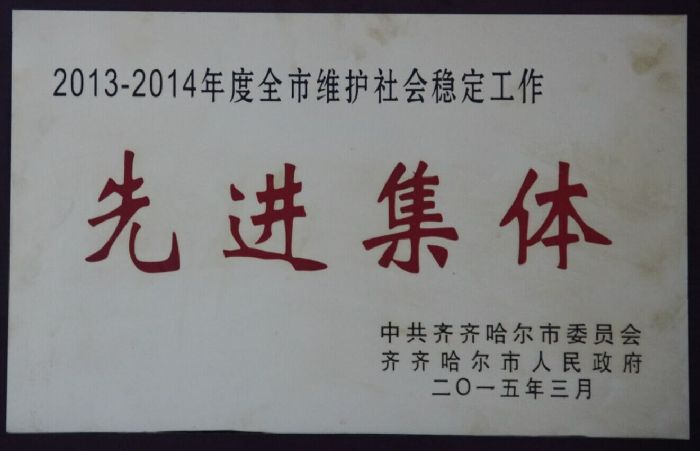 2013-2014年度全市维护社会稳定工作
先进集体
中共齐齐哈尔市委员会
齐齐哈尔市人民政府
二〇一五年三月